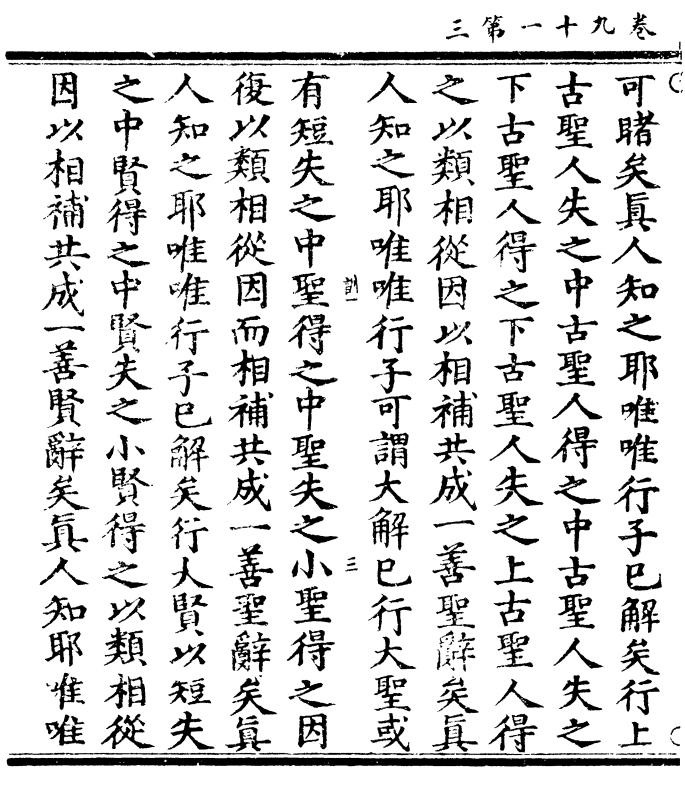 卷九十一第三
可睹矣眞人知之耶唯唯行子已解矣行上
古聖人失之中古聖人得之中古聖人失之
下古聖人得之下古聖人失之上古聖人得
之以類相從因以相補共成一善聖辭矣眞
人知之耶唯唯行子可謂大解已行大聖或
訓一
三
有短失之中聖得之中聖失之小聖得之因
復以類相從因而相補共成一善聖辭矣眞
人知之耶唯唯行子已解矣行大賢以短失
之中賢得之中賢失之小賢得之以類相從
因以相補共成一善賢辭矣眞人知耶唯唯